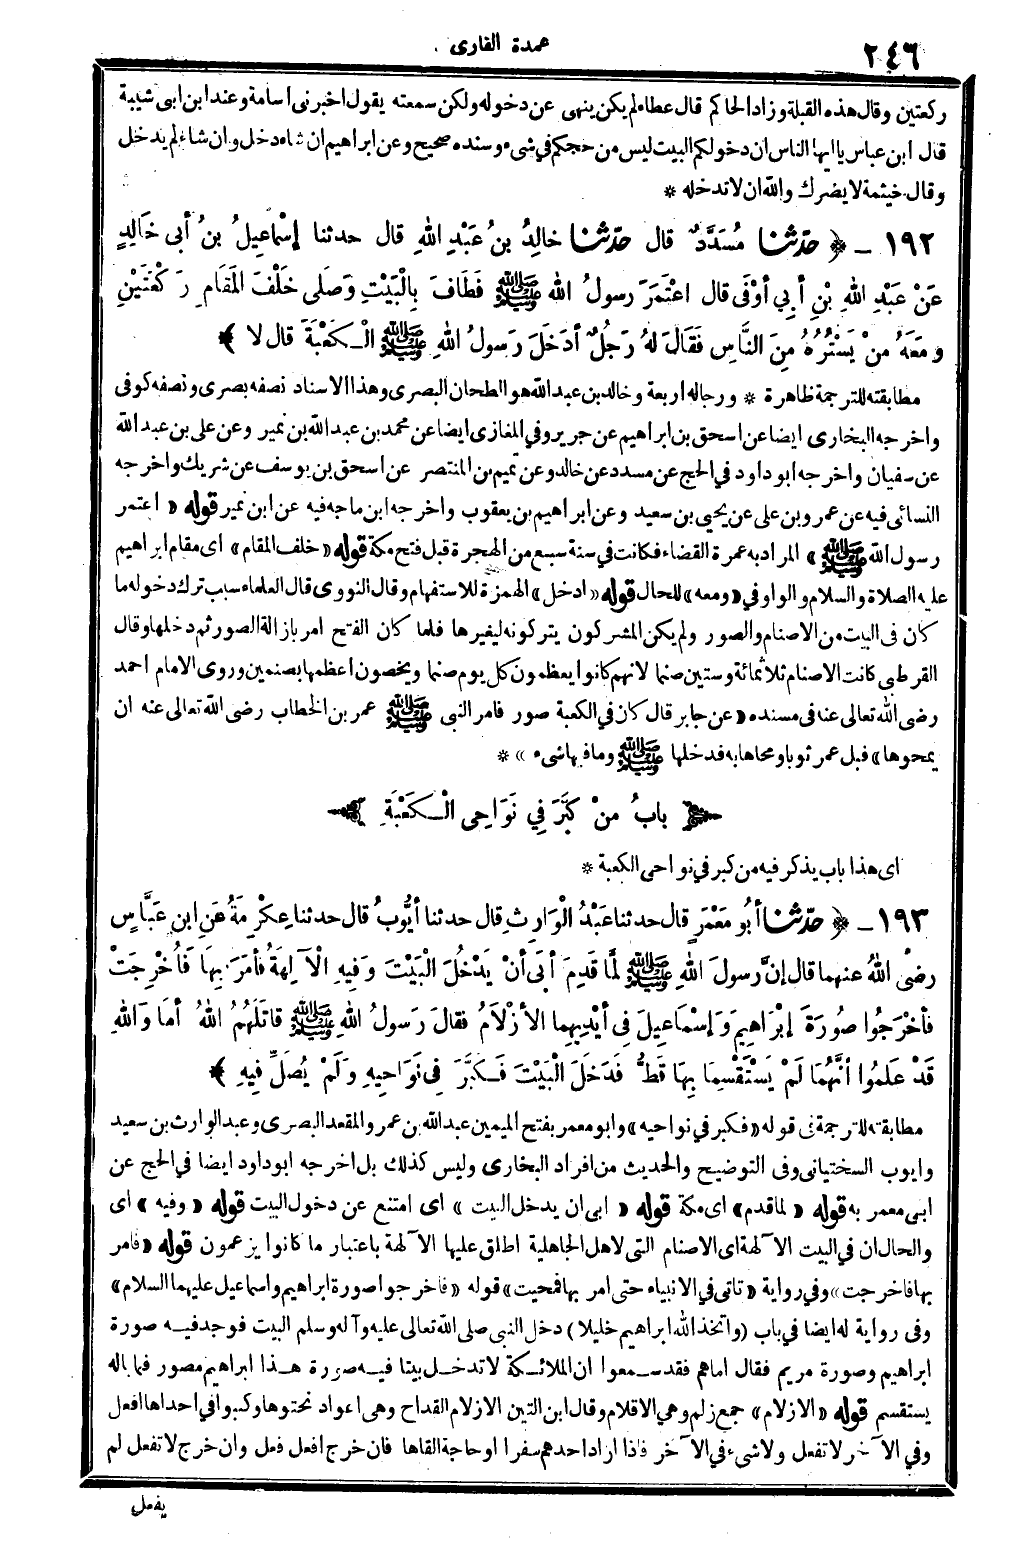 ٢٤٦
عمدة القارى
ركعتين وقال هذه القبلة وزاد الحاكم قال عطاء لم يكن ينهى عن دخوله ولكن سمعته يقول اخبرنى اسامة وعند ابن ابى شيبة
قال ابن عباس يا ايها الناس ان دخولكم البيت ليس من حجكم في شىء وسنده صحيح وعن ابراهيم ان شاء دخل وان شاء لم يدخل
وقال خيثمة لا يضرك والله ان لا تدخله *
١٩٢ ـ ﴿ حَدَّثنا مُسَدَّدٌ قال حَدَّثنا خالِدُ بنُ عَبْدِ اللهِ قال حدثنا إسْماعِيلُ بنُ أبى خَالِدٍ
عَنْ عَبْدِ اللهِ بْنِ أبِي أوْفَى قال اعْتَمَرَ رسولُ اللهِ ﷺ فَطَافَ بِالْبَيْتِ وَصَلَّى خَلْفَ المَقَامِ رَكْعَتَيْنِ
ومَعَهُ مَنْ يَسْتُرُهُ مِنَ النَّاسِ فَقَالَ لهُ رَجُلٌ أدَخَلَ رَسولُ اللهِ ﷺ الْكَعْبَةَ قال لا ﴾
مطابقته للترجمة ظاهرة * ورجاله اربعة وخالد بن عبد الله هو الطحان البصرى وهذا الاسناد نصفه بصرى ونصفه كوفى
واخرجه البخارى ايضا عن اسحق بن ابراهيم عن جرير وفي المغازى ايضا عن محمد بن عبد الله بن نمير وعن على بن عبد الله
عن سفيان واخرجه ابو داود في الحج عن مسدد عن خالد وعن تميم بن المنتصر عن اسحق بن يوسف عن شريك واخرجه
النسائى فيه عن عمرو بن على عن يحيى بن سعيد وعن ابراهيم بن يعقوب واخرجه ابن ماجه فيه عن ابن نمير قوله «اعتمر
رسول الله ﷺ» المراد به عمرة القضاء فكانت في سنة سبع من الهجرة قبل فتح مكة قوله «خلف المقام» اى مقام ابراهيم
عليه الصلاة والسلام والواو في «ومعه» للحال قوله «ادخل» الهمزة للاستفهام وقال النووى قال العلماء سبب ترك دخوله ما
كان فى البيت من الاصنام والصور ولم يكن المشركون يتركونه ليغيرها فلما كان الفتح امر بازالة الصور ثم دخلها وقال
القرطبى كانت الاصنام ثلاثمائة وستين صنما لانهم كانوا يعظمون كل يوم صنما ويخصون اعظمها بصنمين وروى الامام احمد
رضى الله تعالى عنه فى مسنده «عن جابر قال كان في الكعبة صور فامر النبى ﷺ عمر بن الخطاب رضى الله تعالى عنه ان
يمحوها» فبل عمر ثوبا ومحاها به فدخلها ﷺ وما فيها شىء» *
﴿ بابُ منْ كَبَّرَ فِي نَوَاحِى الْكَعْبَةِ ﴾
اى هذا باب يذكر فيه من كبر في نواحى الكعبة *
١٩٣ ـ ﴿ حَدَّثنا أبُو مَعْمَرٍ قال حدثنا عَبْدُ الْوَارِثِ قال حدثنا أيُّوبُ قال حدثنا عِكْرِمَةُ عَنِ ابنِ عَبَّاسٍ
رضىَ اللهُ عنهما قال إنَّ رسولَ اللهِ ﷺ لَمَّا قَدِمَ أبَى أنْ يَدْخُلَ الْبَيْتَ وَفِيهِ الْآلِهَةُ فأمَرَ بِهَا فَأُخْرِجَتْ
فأخْرَجُوا صُورَةَ إبْرَاهِيمَ وَإسْماعِيلَ فِى أيْدِيهِما الأزْلَامُ فقالَ رَسولُ اللهِ ﷺ قاتَلَهُمُ اللهُ أما وَاللهِ
قَدْ عَلِمُوا أنَّهُما لَمْ يَسْتَقْسِما بِهَا قَطُّ فَدَخَلَ الْبَيْتَ فَكَبَّرَ فِى نَوَاحِيهِ وَلَمْ يُصَلِّ فِيهِ ﴾
مطابقته للترجمة فى قوله «فكبر في نواحيه» وابو معمر بفتح الميمين عبد الله بن عمر والمقعد البصرى وعبد الوارث بن سعيد
وايوب السختيانى وفى التوضيح والحديث من افراد البخارى وليس كذلك بل اخرجه ابو داود ايضا في الحج عن
ابى معمر به قوله «لما قدم» اى مكة قوله «ابى ان يدخل البيت» اى امتنع عن دخول البيت قوله «وفيه» اى
والحال ان في البيت الآلهة اى الاصنام التى لاهل الجاهلية اطلق عليها الآلهة باعتبار ما كانوا يزعمون قوله «فامر
بها فاخرجت» وفي رواية «تاتى في الانبياء حتى امر بها فمحيت» قوله «فاخرجوا صورة ابراهيم واسماعيل عليهما السلام»
وفى رواية له ايضا في باب (واتخذ الله ابراهيم خليلا) دخل النبى صلى الله تعالى عليه وآله وسلم البيت فوجد فيه صورة
ابراهيم وصورة مريم فقال اماهم فقد سمعوا ان الملائكة لا تدخل بيتا فيه صورة هذا ابراهيم مصور فما باله
يستقسم قوله «الازلام» جمع زلم وهي الاقلام وقال ابن التين الازلام القداح وهى اعواد نحتوها وكتبوا في احداها افعل
وفي الآخر لا تفعل ولا شىء في الآخر فاذا اراد احدهم سفرا او حاجة القاها فان خرج افعل فعل وان خرج لا تفعل لم
يفعل